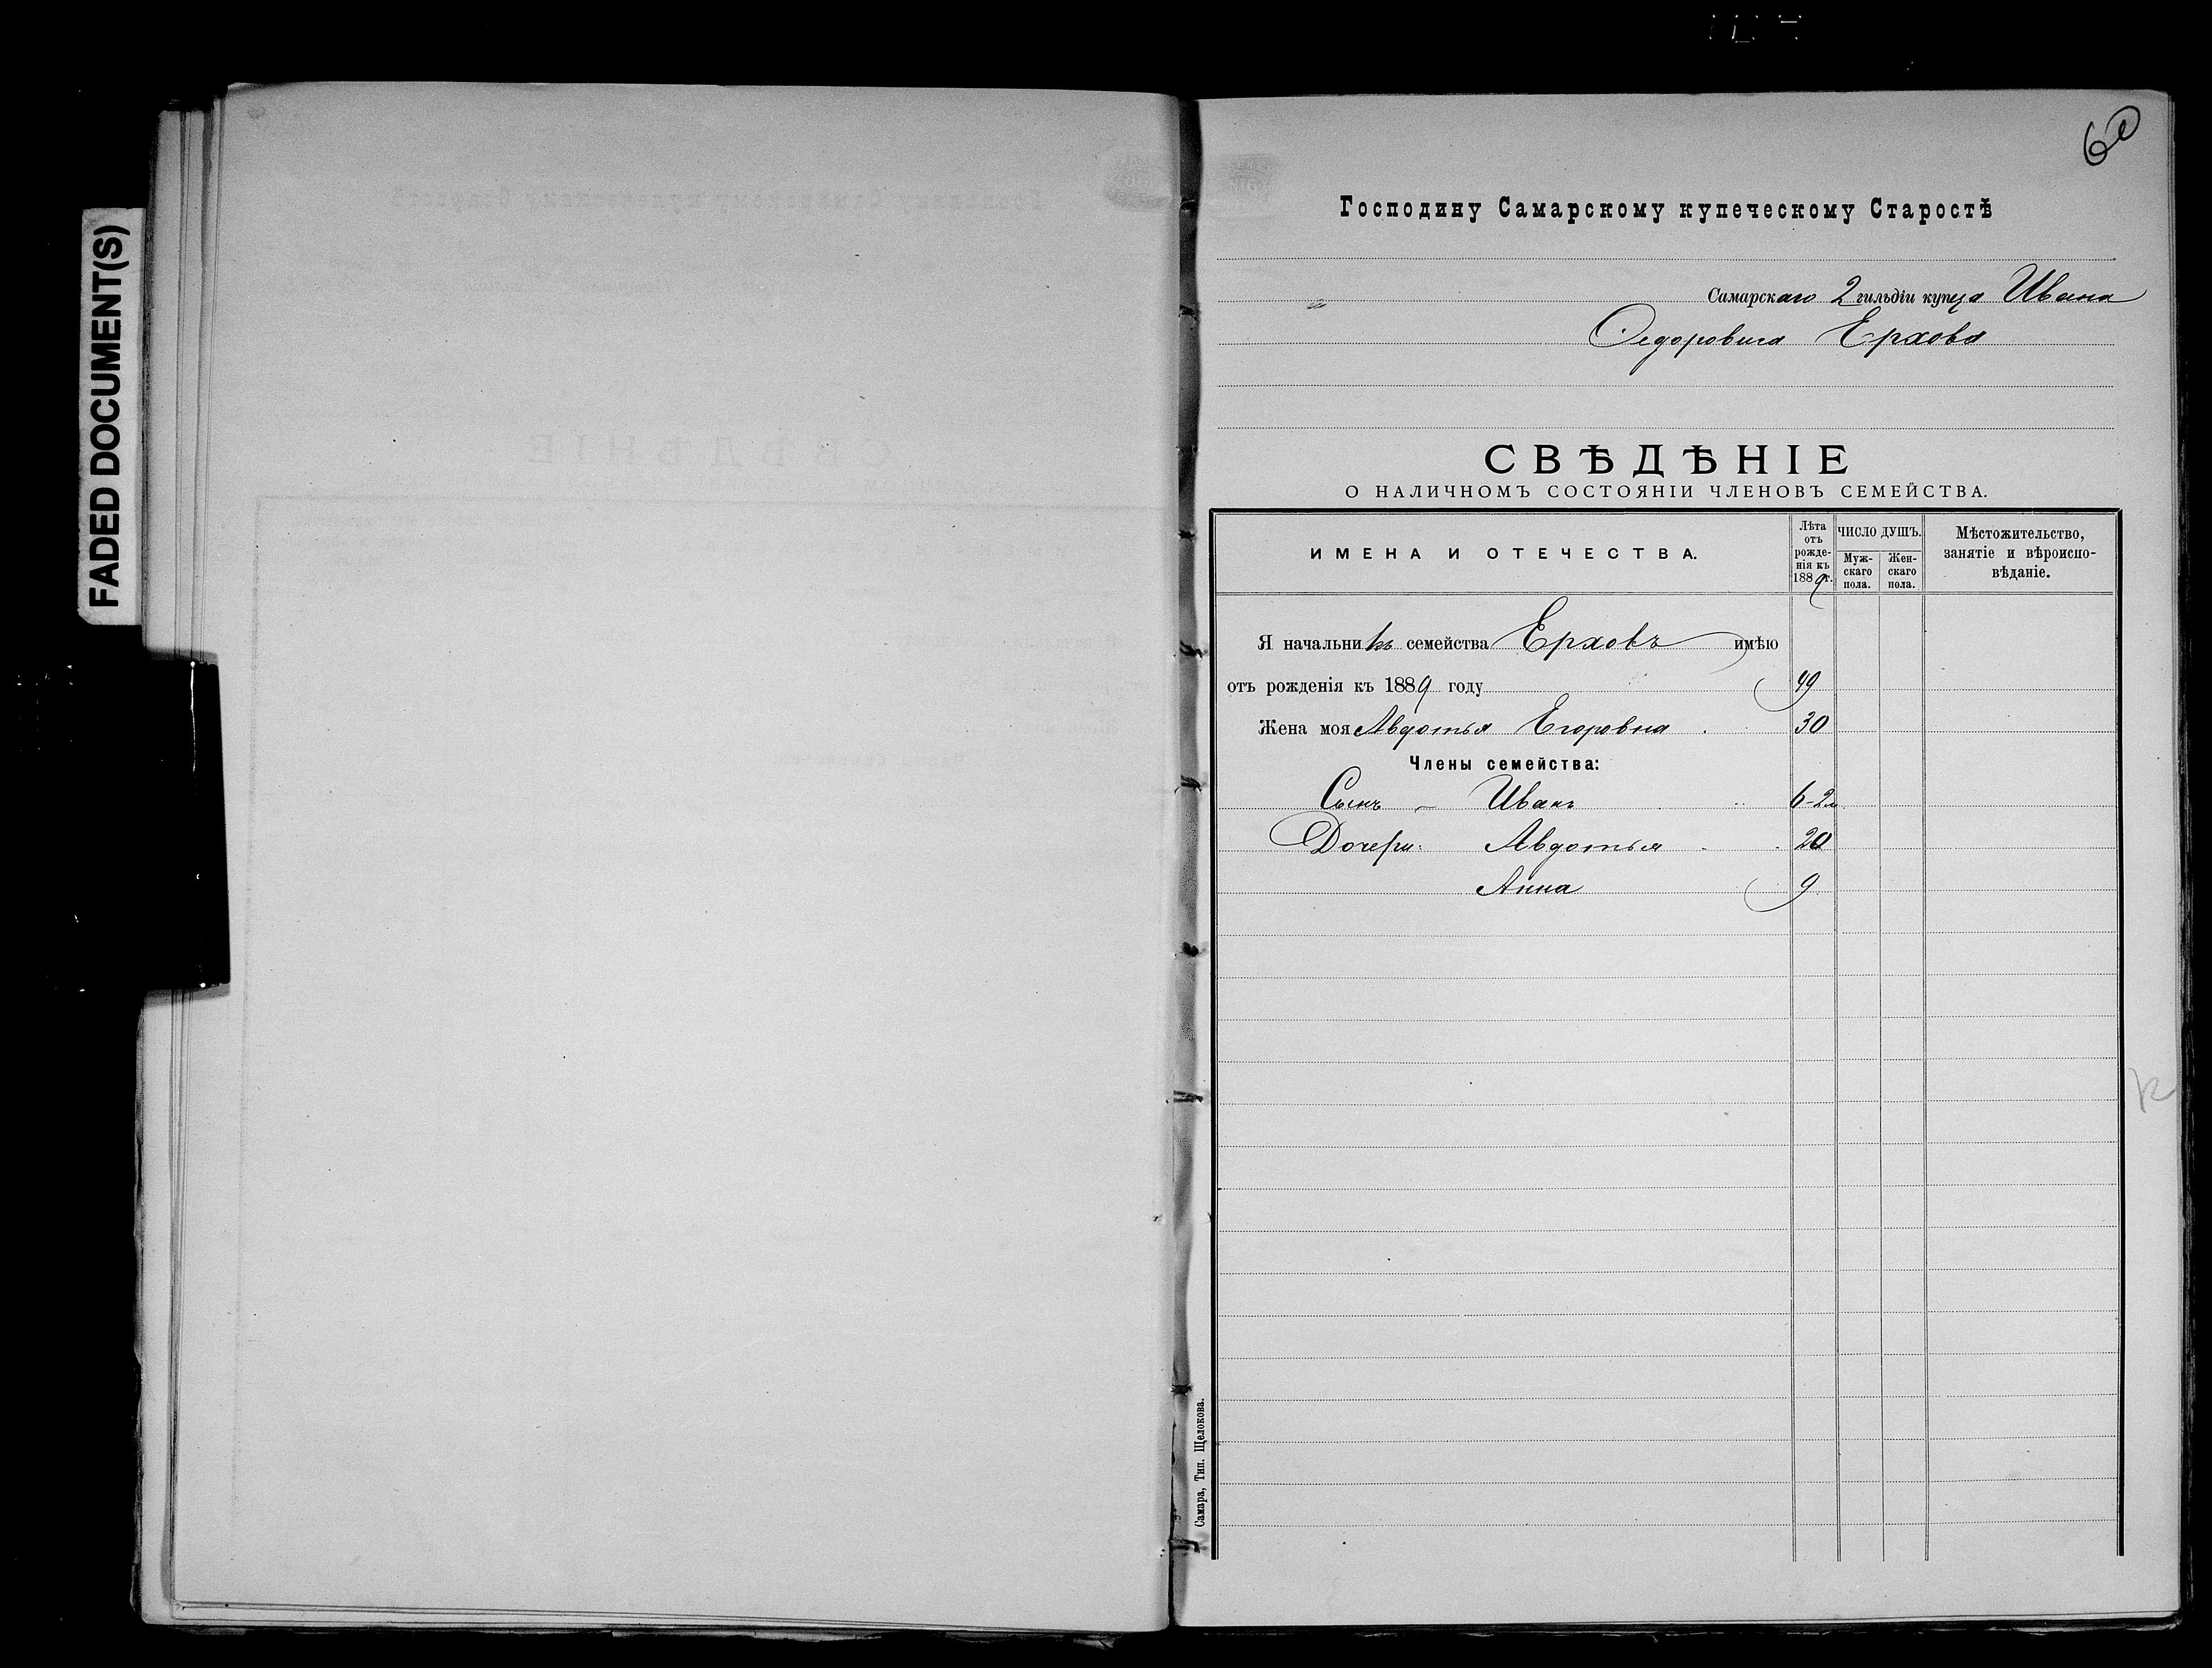 FADED DOCUMENT(S)
60
Господину Самарскому купеческому Старостѣ
Самарскаго 2 гильдіи купца Ивана
Федоровича Ерхова
СВѢДѢНІЕ
О НАЛИЧНОМЪ СОСТОЯНІИ ЧЛЕНОВЪ СЕМЕЙСТВА.
ИМЕНА И ОТЕЧЕСТВА.
Лѣта отъ рожде-нія къ 1889 г.
ЧИСЛО ДУШЪ.
Муж-скаго пола.
Жен-скаго пола.
Мѣстожительство, занятіе и вѣроиспо-вѣданіе.
Я начальникъ семейства Ерховъ имѣю
отъ рожденія къ 1889 году 49
Жена моя Авдотья Егоровна 30
Члены семейства:
Сынъ – Иванъ 6-2м
Дочери: Авдотья 20
Анна 9
Самара, Тип. Щелокова.